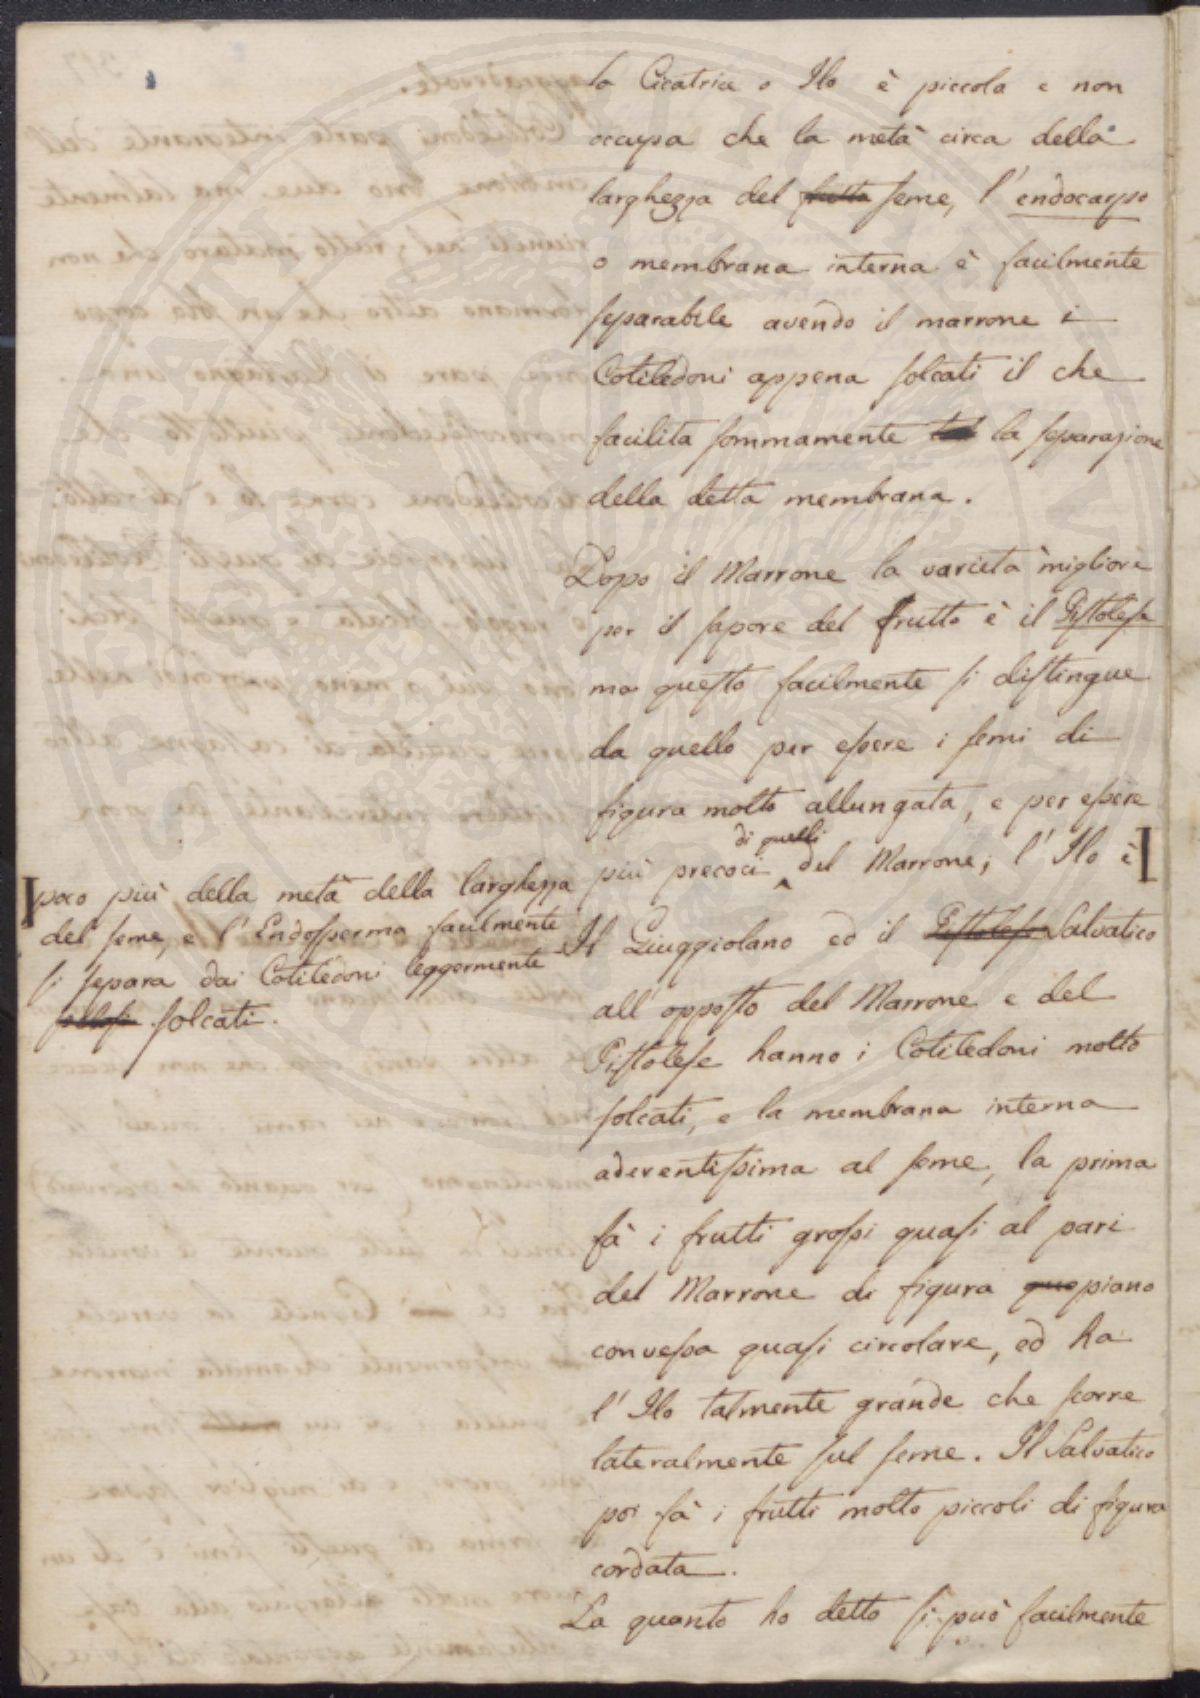 la Cicatrice o Ilo è piccola e non
occupa che la metà circa della
larghezza del frutto seme, l'endocarpo
o membrana interna è facilmente
separabile avendo il marrone i
Cotiledoni appena solcati il che
facilita sommamente la separazione
della detta membrana.
Dopo il Marrone la varietà migliore
per il sapore del frutto è il Pistolese
ma questo facilmente si distingue
da quello per essere i semi di
figura molto allungata, e per essere
più precoci di quelli del Marrone, l'Ilo è
poco più della metà della larghezza
del seme, e l'Endosperma facilmente
si separa dai Cotiledoni leggermente
solcati.
Il Giuggiolano ed il Pistolese Salvatico
all'opposto del Marrone e del
Pistolese hanno i Cotiledoni molto
solcati, e la membrana interna
aderentissima al seme, la prima
fà i frutti grossi quasi al pari
del Marrone di figura qua piano
convessa quasi circolare, ed ha
l'Ilo talmente grande che scorre
lateralmente sul seme. Il Salvatico
poi fà i frutti molto piccoli di figura
cordata.
Da quanto ho detto si può facilmente